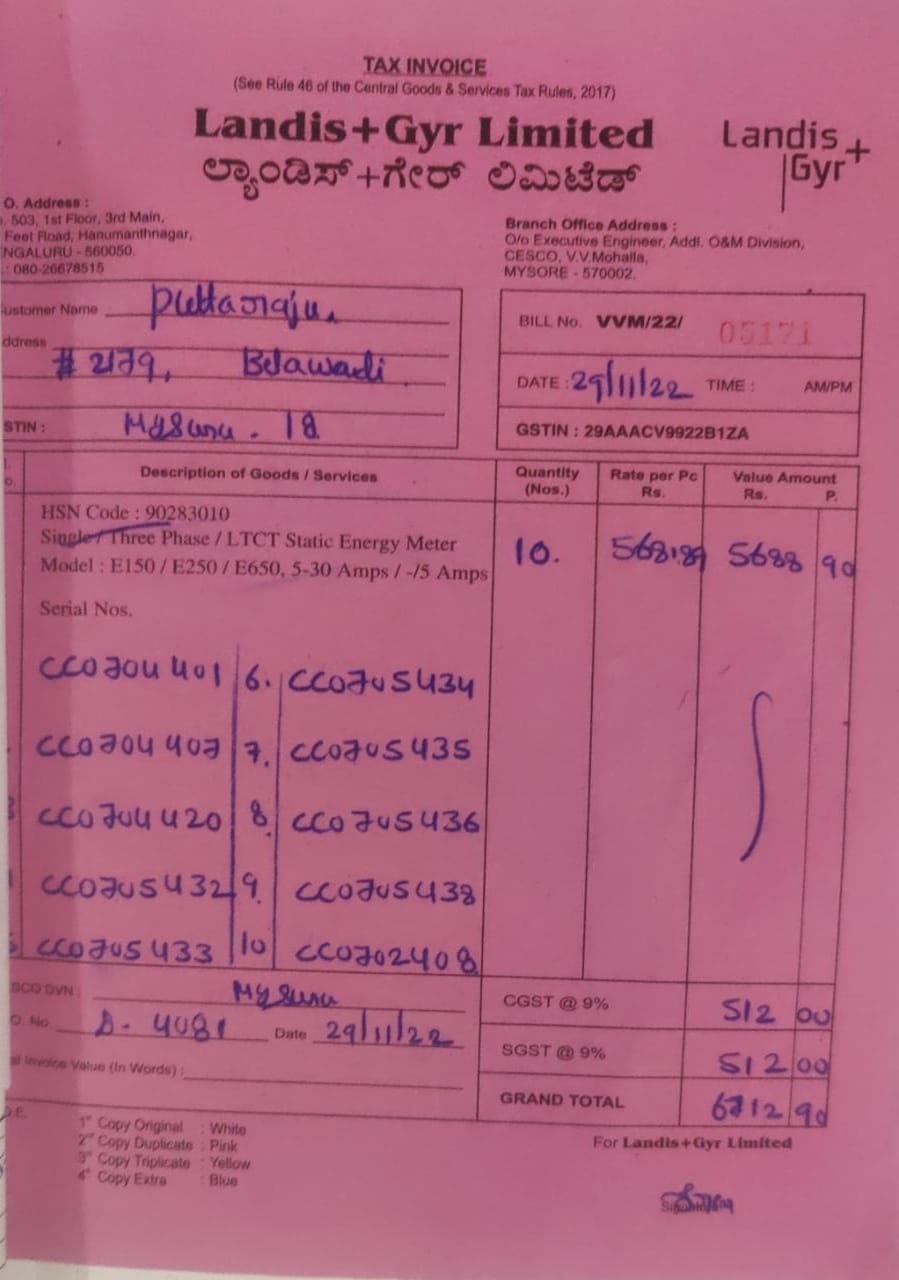 TAX INVOICE
(See Rule 46 of the Central Goods & Services Tax Rules, 2017)
Landis+Gyr Limited
Landis
Gyr+
ಲ್ಯಾಂಡಿಸ್+ಗೇರ್ ಲಿಮಿಟೆಡ್
O. Address :
503, 1st Floor, 3rd Main,
Feet Road, Hanumanthnagar,
NGALURU - 560050.
: 080-26678515
Branch Office Address :
O/o Executive Engineer, Addl. O&M Division,
CESCO, V.V.Mohalla,
MYSORE - 570002.
ustomer Name Puttaraju
ddress
# 2179, Belawadi
STIN : Mysuru - 18
BILL No. VVM/22/ 05171
DATE : 29/11/22 TIME : AM/PM
GSTIN : 29AAACV9922B1ZA
Description of Goods / Services
Quantity (Nos.)
Rate per Pc Rs.
Value Amount Rs. P.
HSN Code : 90283010
Single / Three Phase / LTCT Static Energy Meter
Model : E150 / E250 / E650, 5-30 Amps / -/5 Amps
10. 568.89 5688 90
Serial Nos.
CC0704401 6. CC0705434
CC0704407 7. CC0705435
CC0704420 8. CC0705436
CC0705432 9. CC0705438
CC0705433 10 CC0702408
SCO DVN : Mysuru
O. No. D- 4081 Date 29/11/22
al Invoice Value (In Words) :
CGST @ 9% 512 00
SGST @ 9% 512 00
GRAND TOTAL 6712 90
1st Copy Original : White
2nd Copy Duplicate : Pink
3rd Copy Triplicate : Yellow
4th Copy Extra : Blue
For Landis+Gyr Limited